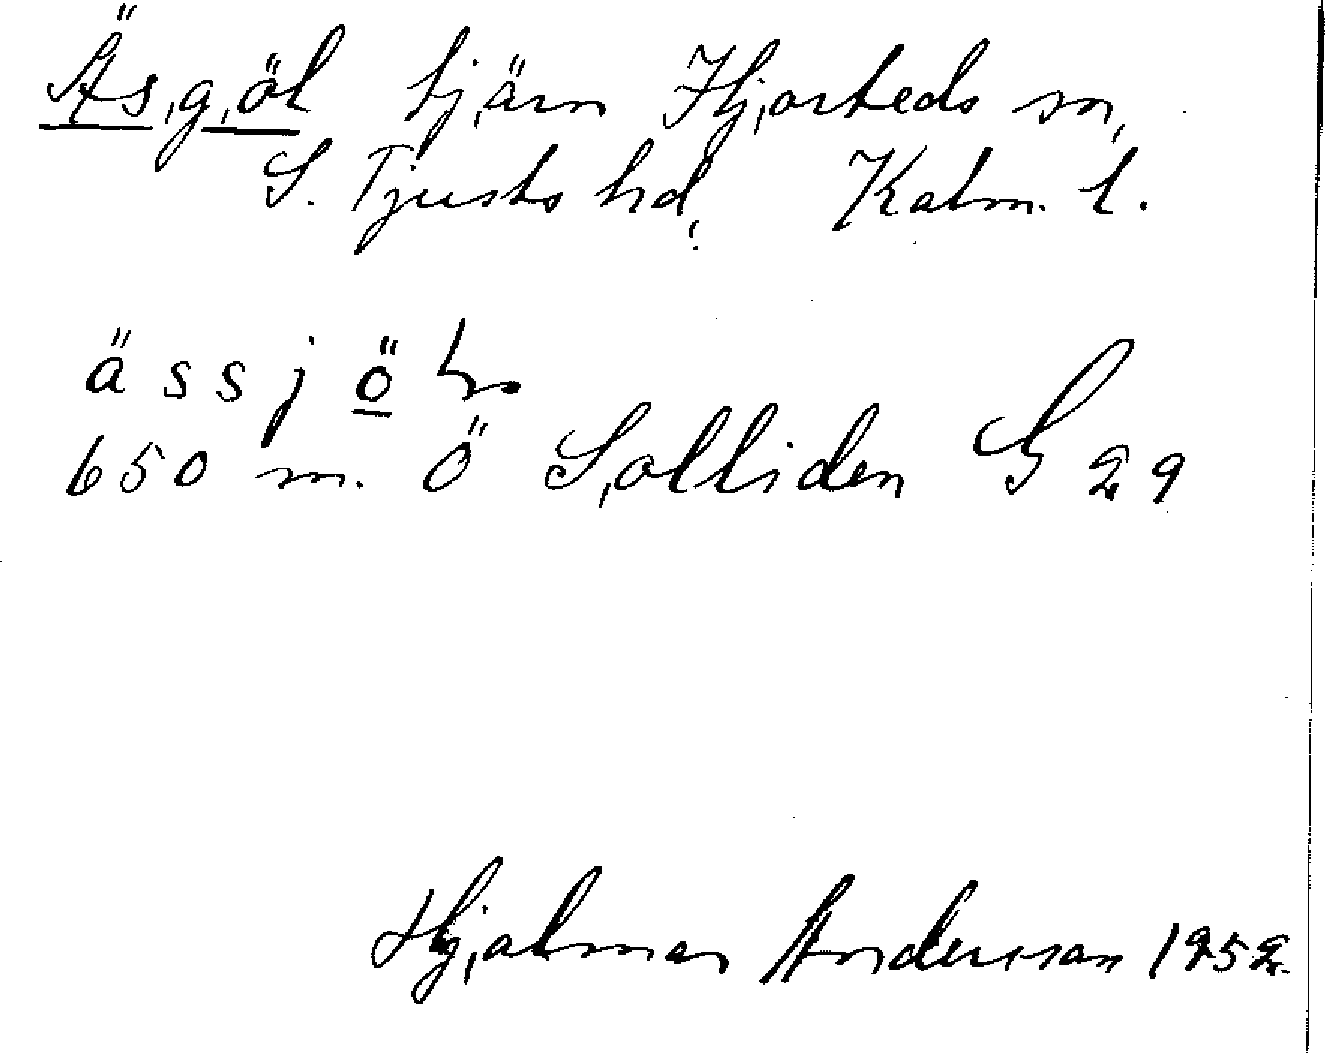 Äsgöl tjärn Hjorteds sn,
S. Tjusts hd, Kalm. l.
ässjö
650 m. Ö Solliden G 29
Hjalmar Andersson 1952.